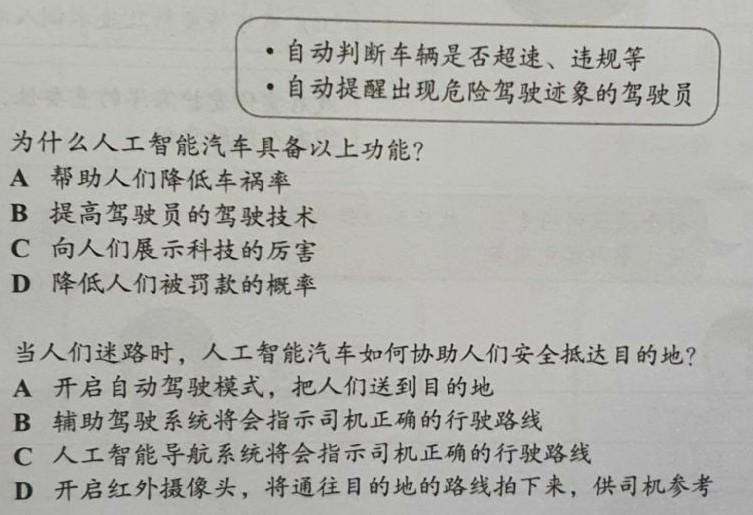 • 自动判断车辆是否超速、违规等
• 自动提醒出现危险驾驶迹象的驾驶员
为什么人工智能汽车具备以上功能？
A 帮助人们降低车祸率
B 提高驾驶员的驾驶技术
C 向人们展示科技的厉害
D 降低人们被罚款的概率
当人们迷路时，人工智能汽车如何协助人们安全抵达目的地？
A 开启自动驾驶模式，把人们送到目的地
B 辅助驾驶系统将会指示司机正确的行驶路线
C 人工智能导航系统将会指示司机正确的行驶路线
D 开启红外摄像头，将通往目的地的路线拍下来，供司机参考